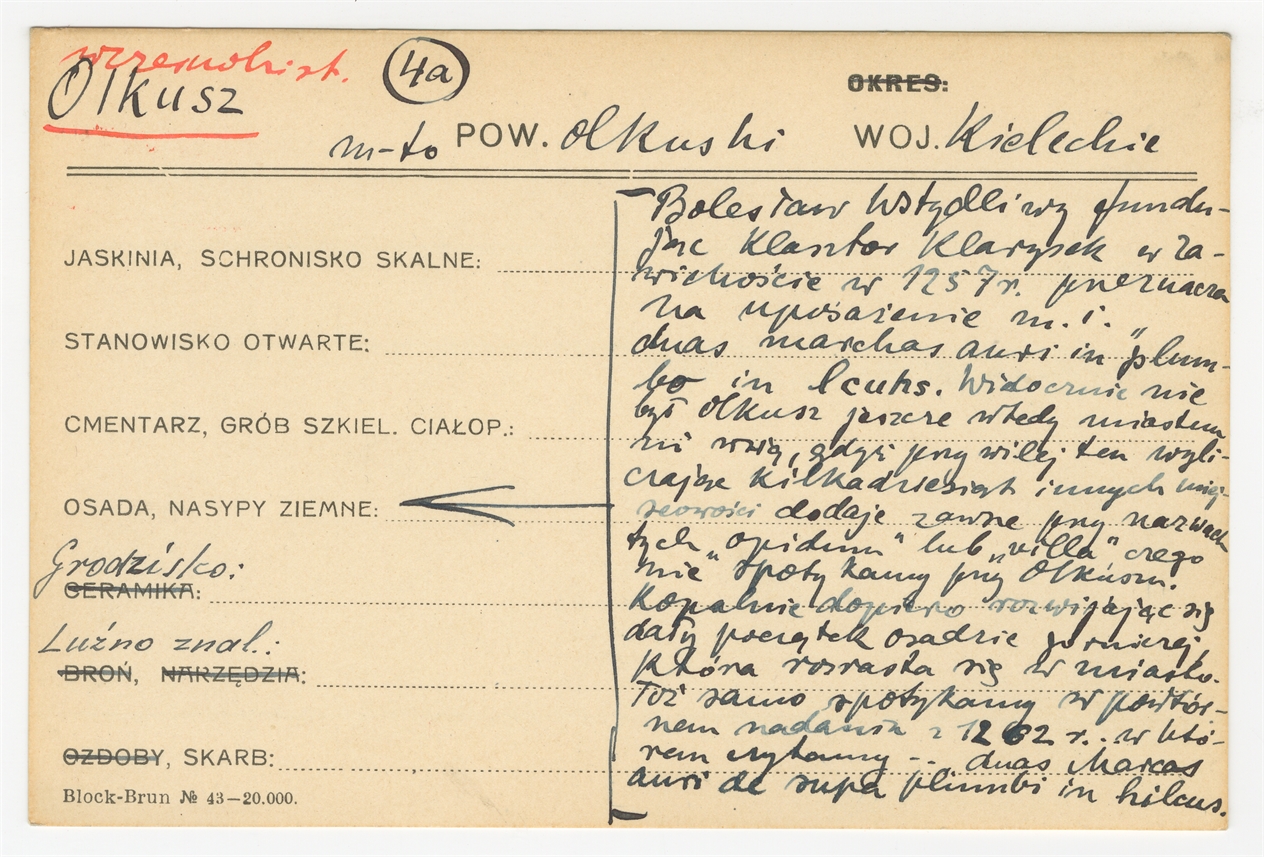 wczesnohist.
Olkusz
4a
OKRES:
m-to POW. olkuski WOJ. Kieleckie
JASKINIA, SCHRONISKO SKALNE:
STANOWISKO OTWARTE:
CMENTARZ, GRÓB SZKIEL. CIAŁOP.:
OSADA, NASYPY ZIEMNE:
Grodzisko:
CERAMIKA:
Luźno znal.:
BROŃ, NARZĘDZIA:
OZDOBY, SKARB:
Block-Brun № 43—20.000.
Bolesław Wstydliwy fundu-
jąc klasztor Klarysek w Za-
wichoście w 1257 r. przeznacza
na uposażenie m. i.
duas marchas auri in "plum-
bo in lcuhs. Widocznie nie
był Olkusz jeszcze wtedy miastem
ni wsią, gdyż przywilej ten wyli-
czając kilkadziesiąt innych miej-
scowości dodaje zawsze przy nazwach
tych „opidum" lub „villa" czego
nie spotykamy przy Olkuszu.
Kopalnie dopiero rozwijając się
dały początek osadzie górniczej,
która rozrasta się w miasto.
Toż samo spotykamy w powtór-
nem nadaniu z 1262 r. w któ-
rem czytamy .. duas Marcas
auri de supa plumbi in hilcus.